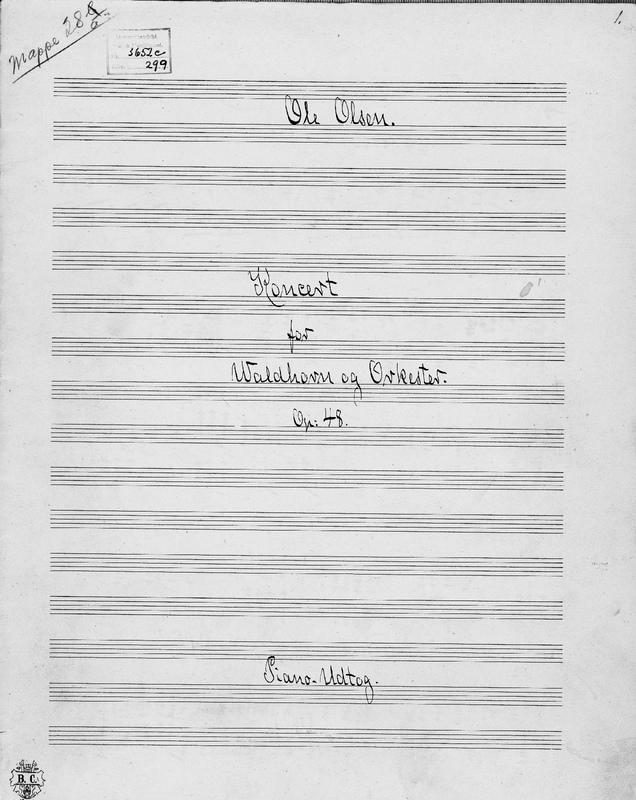 Mappe 28
1.
3652c
299
Ole Olsen.
Koncert
for
Waldhorn og Orkester.
Op: 48.
Piano-Udtog.
B. C.